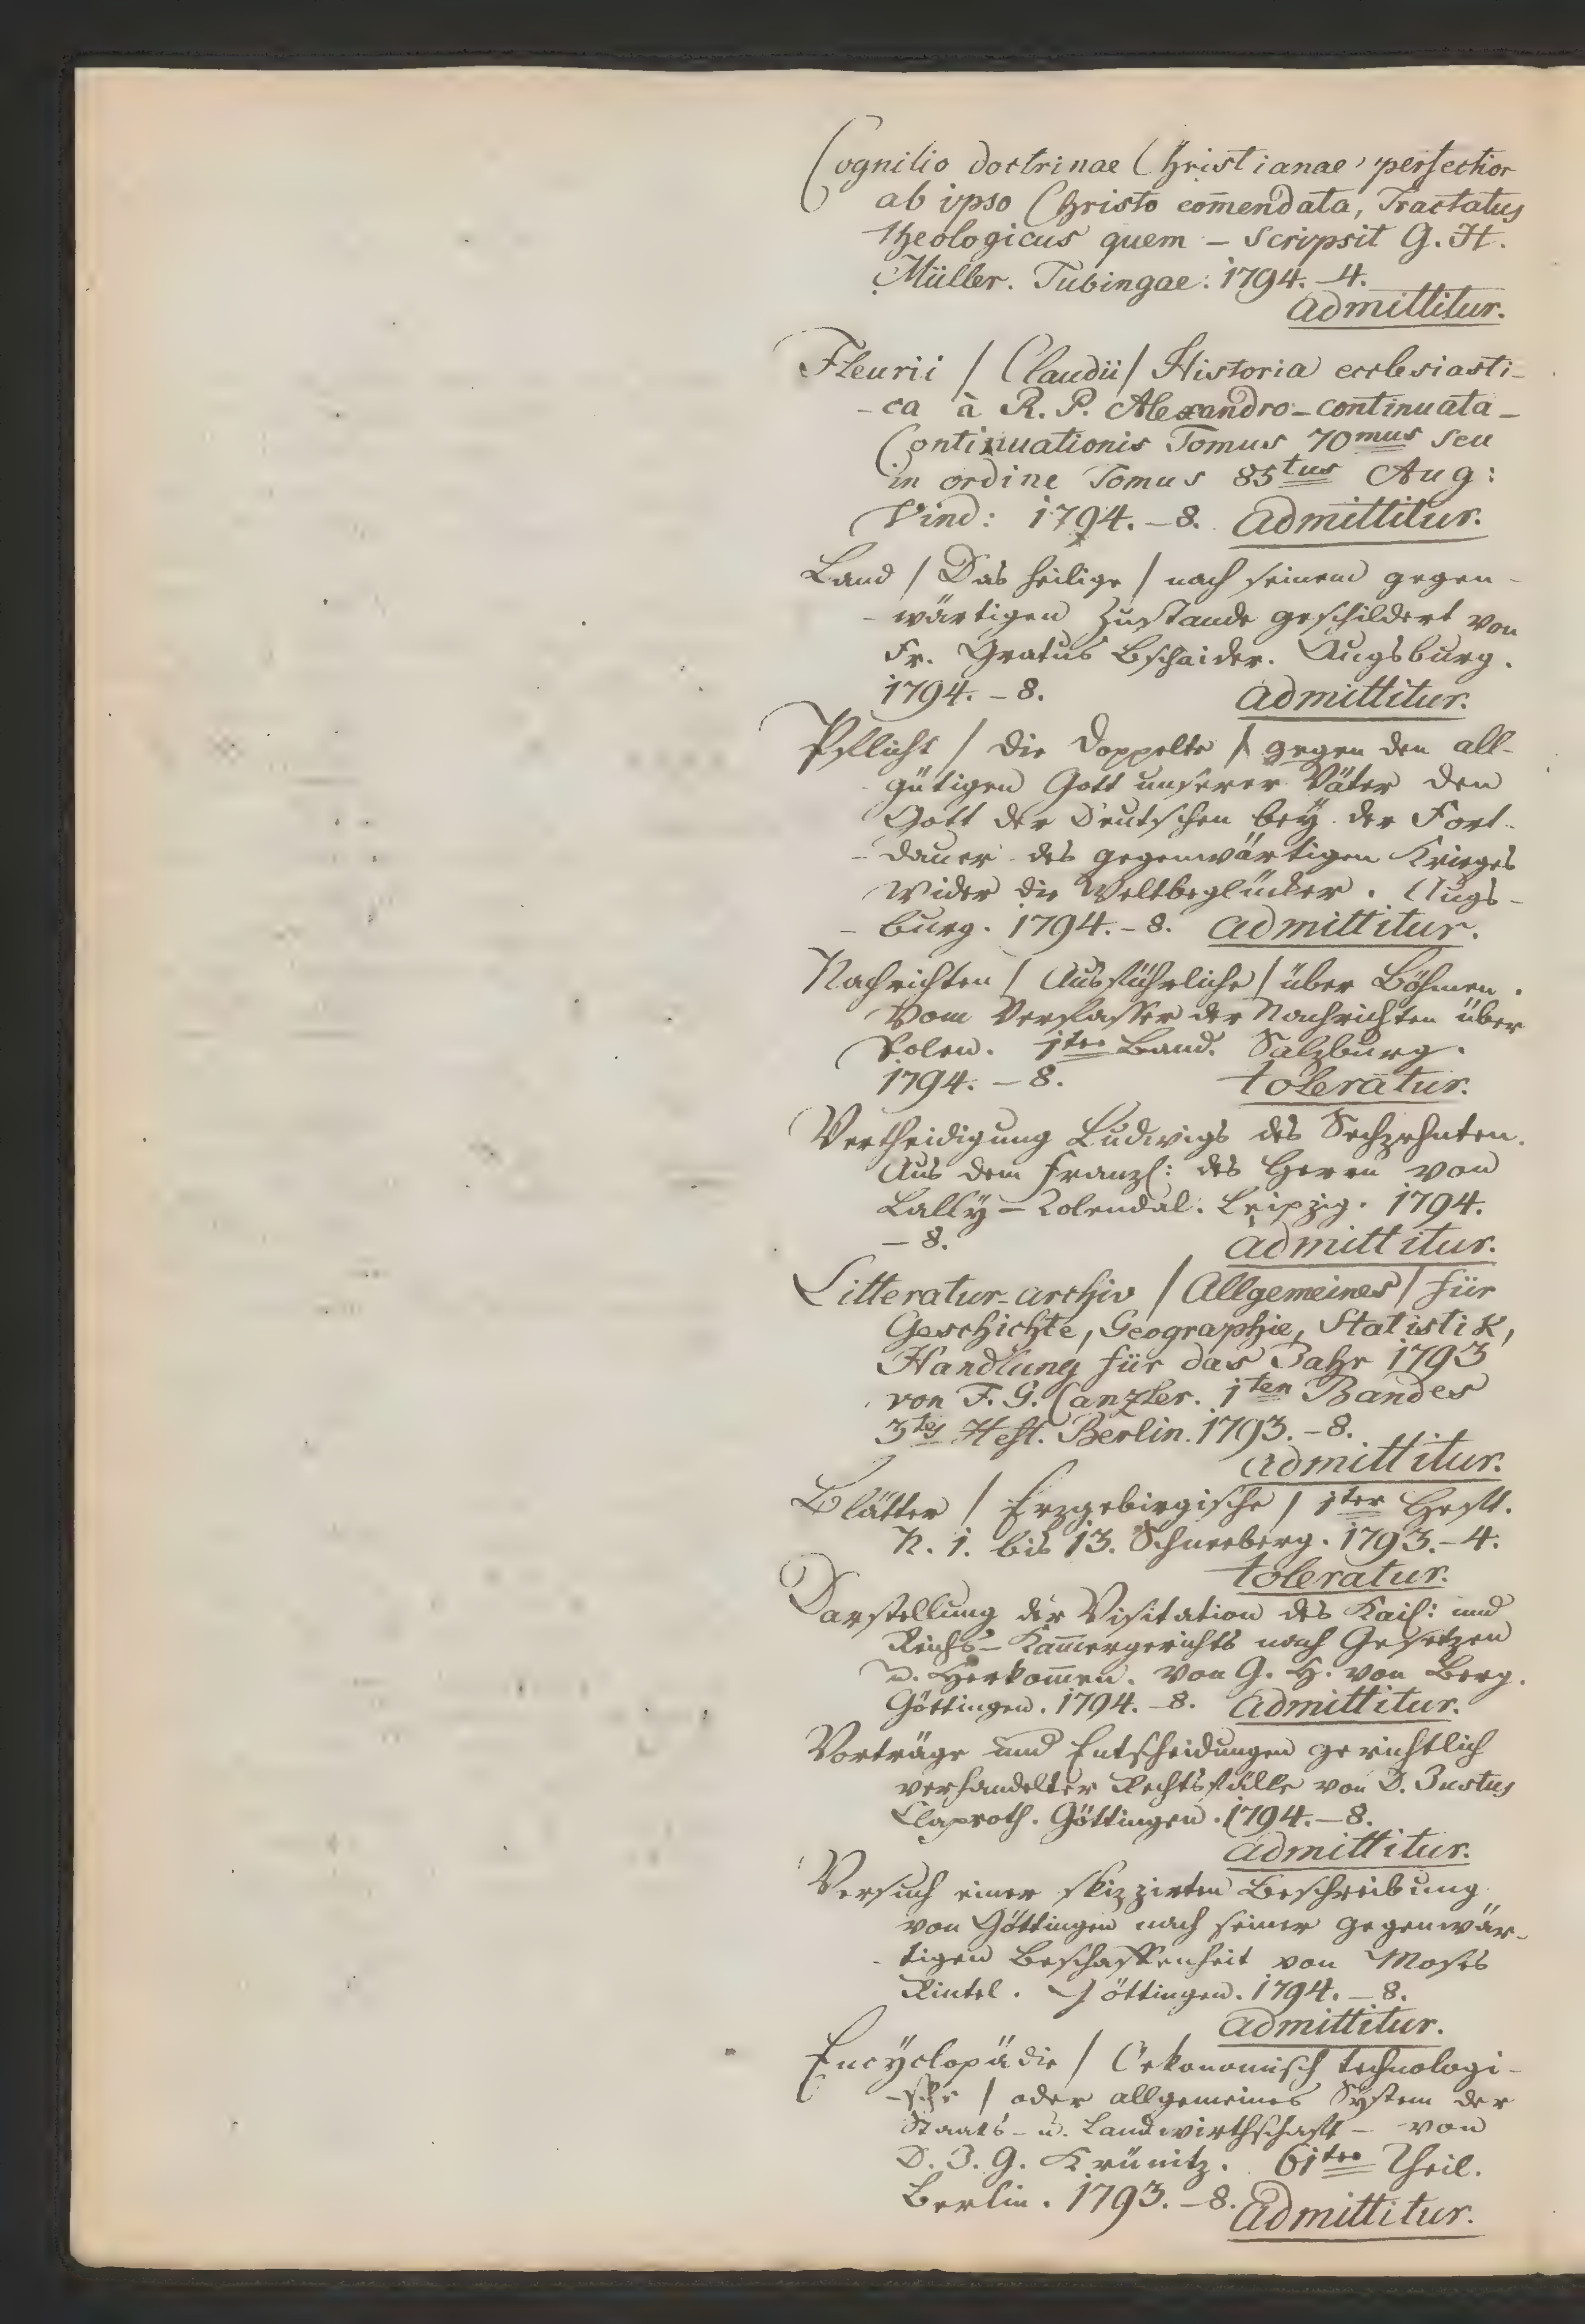 Cognitio doctrinae Christianae perfectior
ab ipso Christo com̄endata, Tractatus
theologicus quem – scripsit G. H.
Müller. Tubingae. 1794. – 4.
admittitur.
Fleurii / Claudii / Historia ecclesiasti-
- ca à R. P. Alexandro – continuata –
Continuationis Tomus 70mus seu
in ordine Tomus 85tus Aug:
Vind: 1794. – 8. admittitur.
Land / Das heilige / nach seinem gegen-
- wärtigen Zustande geschildert von
Fr. Gratus Bschaider. Augsburg.
1794. – 8. admittitur.
Pflicht / die doppelte / gegen den all-
- gütigen Gott unserer Väter den
Gott der Deutschen bey der Fort-
- dauer des gegenwärtigen Krieges
wider die Weltbeglücker. Augs-
- burg. 1794. – 8. admittitur.
Nachrichten / Ausführliche / über Böhmen.
Vom Verfasser der Nachrichten über
Polen. 1ter Band. Salzburg.
1794. – 8. toleratur.
Vertheidigung Ludwigs des Sechzehnten.
Aus dem Franzs: des Herrn von
Lally – Tolendal. Leipzig. 1794.
– 8. admittitur.
Litteratur-archiv / Allgemeines / für
Geschichte, Geographie, Statistik,
Handlung für das Jahr 1793
von F. G. Canzler. 1ten Bandes
3tes Heft. Berlin. 1793. – 8.
admittitur.
Blätter / Erzgebirgische / 1ter Heft.
N. 1. bis 13. Schneeberg. 1793. – 4.
toleratur.
Darstellung der Visitation des Kais: und
Reichs – Kam̄ergerichts nach Gesetzen
u. Herkom̄en. von G. H. von Berg.
Göttingen. 1794. – 8. admittitur.
Vorträge und Entscheidungen gerichtlich
verhandelter Rechtsfälle von D. Justus
Claproth. Göttingen. 1794. – 8.
admittitur.
Versuch einer skizzirten Beschreibung
von Göttingen nach seiner gegenwär-
- tigen Beschaffenheit von Moses
Rintel. Göttingen. 1794. – 8.
admittitur.
Encÿclopädie / Oekonomisch technologi-
- sche / oder allgemeines System der
Staats- u. Landwirthschaft – von
D. J. G. Krünitz. 61ter Theil.
Berlin. 1793. – 8. admittitur.